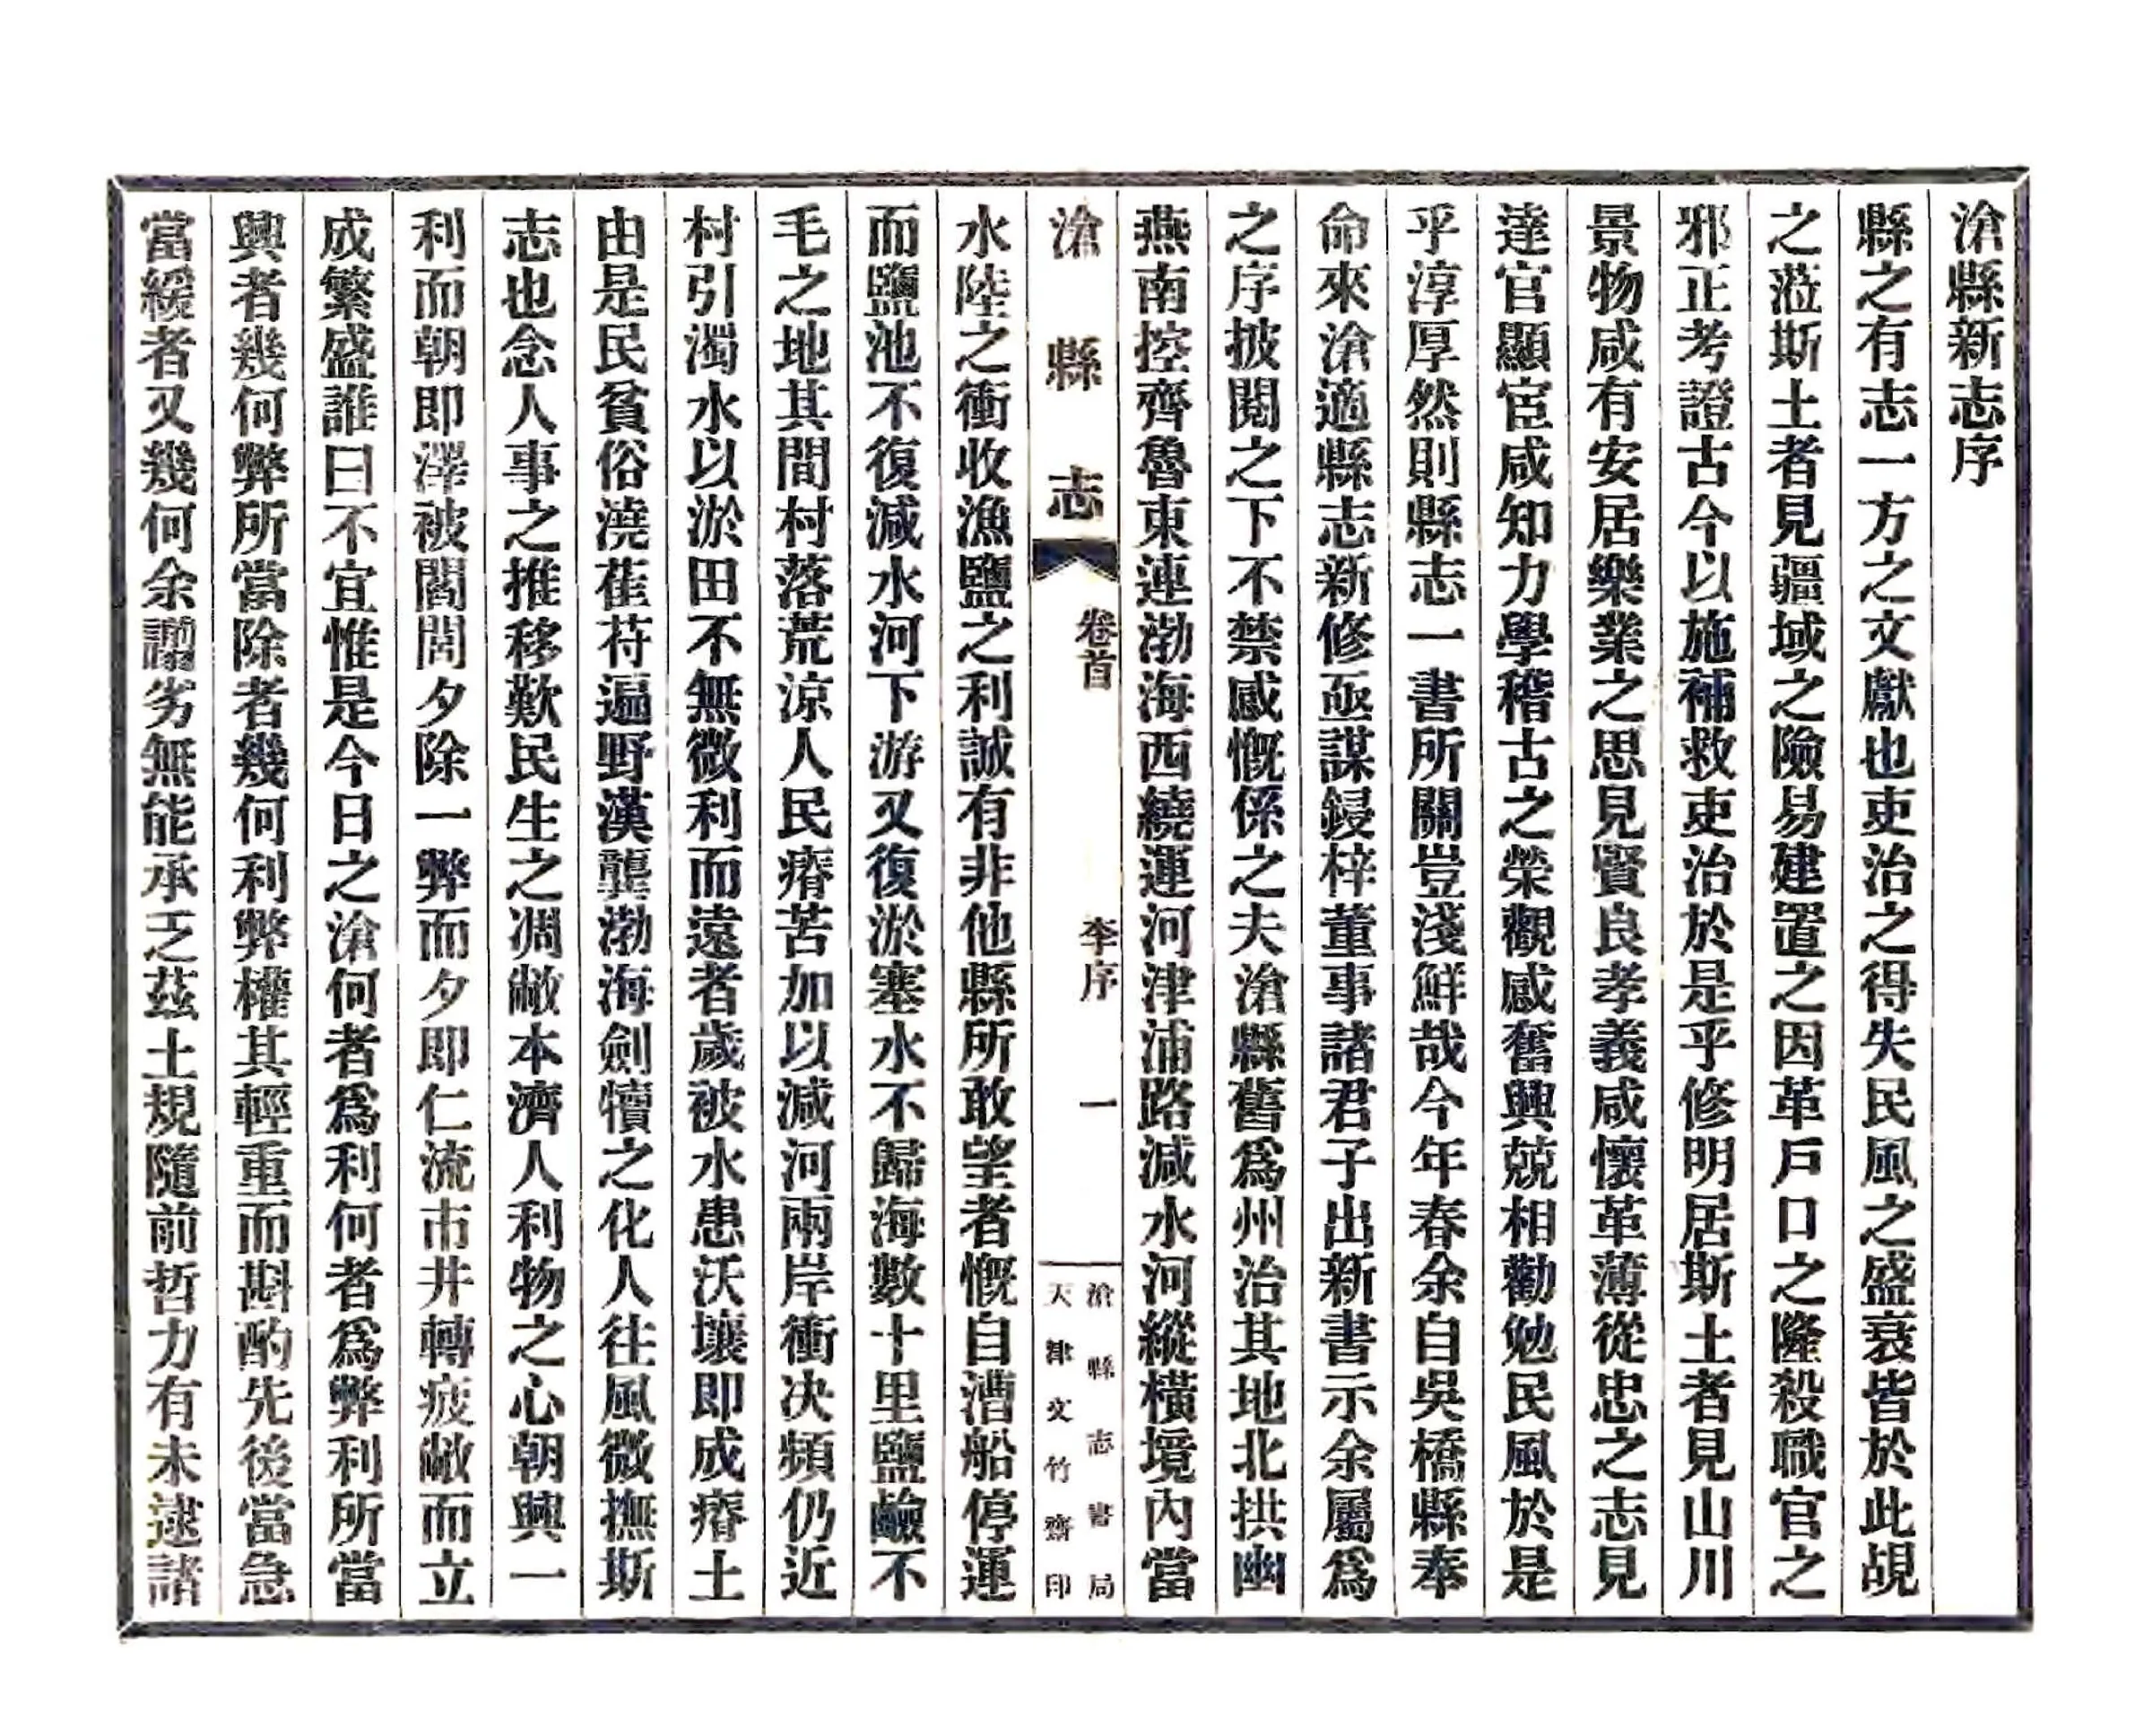 滄縣新志序
縣之有志一方之文獻也吏治之得失民風之盛衰皆於此覘
之蒞斯土者見疆域之險易建置之因革戶口之隆殺職官之
邪正考證古今以施補救吏治於是乎修明居斯土者見山川
景物咸有安居樂業之思見賢良孝義咸懷革薄從忠之志見
達官顯宦咸知力學稽古之榮觀感奮興兢相勸勉民風於是
乎淳厚然則縣志一書所關豈淺鮮哉今年春余自吳橋縣奉
命來滄適縣志新修亟謀鋟梓董事諸君子出新書示余屬爲
之序披閱之下不禁感慨係之夫滄縣舊爲州治其地北拱幽
燕南控齊魯東連渤海西繞運河津浦路減水河縱橫境內當
滄縣志
卷首
李序
一
滄縣志書局
天津文竹齋印
水陸之衝收漁鹽之利誠有非他縣所敢望者慨自漕船停運
而鹽池不復減水河下游又復淤塞水不歸海數十里鹽鹼不
毛之地其間村落荒涼人民瘠苦加以減河兩岸衝決頻仍近
村引濁水以淤田不無微利而遠者歲被水患沃壤即成瘠土
由是民貧俗澆萑苻遍野漢龔渤海劍犢之化人往風微撫斯
志也念人事之推移歎民生之凋敝本濟人利物之心朝興一
利而朝即澤被閭閻夕除一弊而夕即仁流市井轉疲敝而立
成繁盛誰曰不宜惟是今日之滄何者爲利何者爲弊利所當
興者幾何弊所當除者幾何利弊權其輕重而斟酌先後當急
當緩者又幾何余譾劣無能承乏茲土規隨前哲力有未逮諸